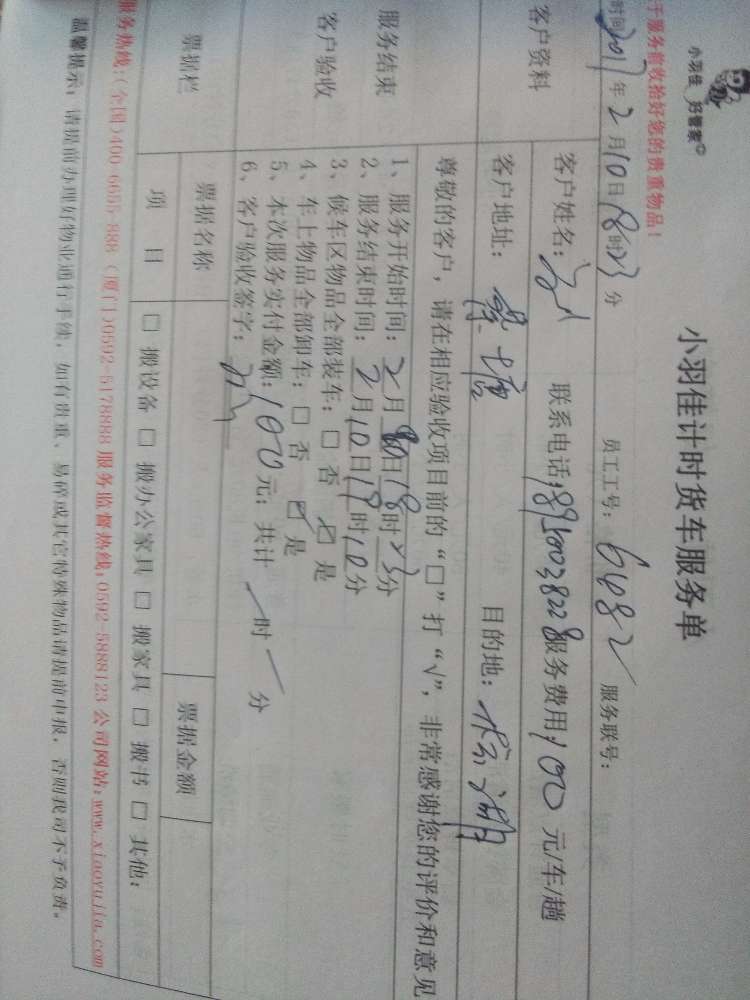 小羽佳 好管家©
小羽佳计时货车服务单
于服务前收拾好您的贵重物品!
时间2017年2月10日18时23分 员工工号: 6982 服务联号:
客户资料
客户姓名: 联系电话: 服务费用:100元/车/趟
客户地址: 目的地:
尊敬的客户,请在相应验收项目前的“□”打“√”,非常感谢您的评价和意见
服务结束
客户验收
1、服务开始时间:2月10日18时23分
2、服务结束时间:2月10日19时10分
3、候车区物品全部装车:□ 否 ☑ 是
4、车上物品全部卸车:□ 否 ☑ 是
5、本次服务实付金额:100元;共计 一 时 一 分
6、客户验收签字:
票据栏
票据名称 票据金额
项 目 □ 搬设备 □ 搬办公家具 □ 搬家具 □ 搬书 □ 其他:
服务热线:(全国)400-6655-888 (厦门)0592-5178888 服务监督热线:0592-5888123 公司网站:www.xiaoyujia.com
温馨提示:请提前办理好物业通行手续,如有贵重、易碎或其它特殊物品请提前申报,否则我司不予负责。